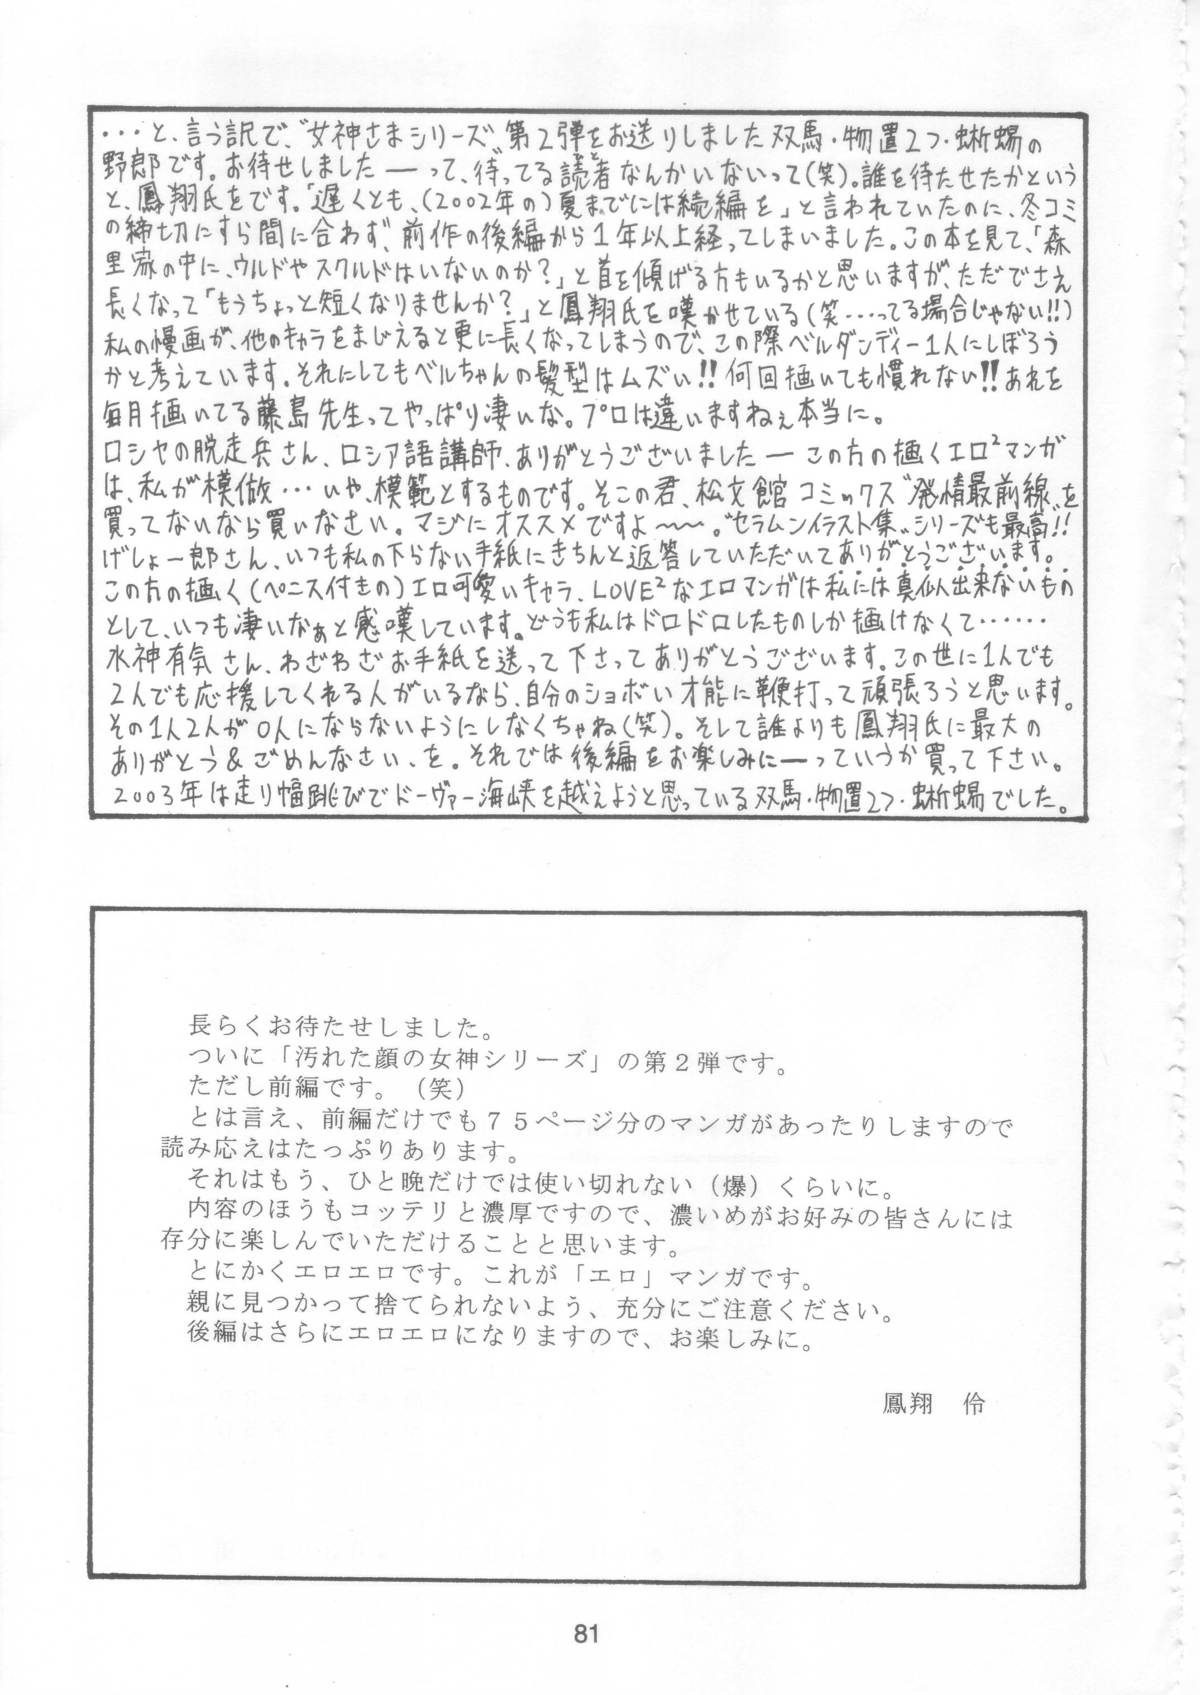 ・・・と、言う訳で、〝女神さまシリーズ〟第2弾をお送りしました双馬・物置2つ・蜥蜴の
野郎です。お待せしました――って、待ってる読者なんかいないって(笑)。誰を待たせたかという
と、鳳翔氏をです。「遅くとも、(2002年の)夏までには続編を」と言われていたのに、冬コミ
の締切にすら間に合わず、前作の後編から1年以上経ってしまいました。この本を見て、「森
里家の中に、ウルドやスクルドはいないのか?」と首を傾げる方もいるかと思いますが、ただでさえ
長くなって「もうちょっと短くなりませんか?」と鳳翔氏を嘆かせている(笑・・・ってる場合じゃない!!)
私の漫画が、他のキャラをまじえると更に長くなってしまうので、この際ベルダンディー1人にしぼろう
かと考えています。それにしてもベルちゃんの髪型はムズい!!何回描いても慣れない!!あれを
毎月描いてる藤島先生ってやっぱり凄いな。プロは違いますねぇ本当に。
ロシヤの脱走兵さん、ロシア語講師、ありがとうございました―この方の描くエロ²マンガ
は、私が模倣・・・いや、模範とするものです。そこの君、松文館コミックス〝発情最前線〟を
買ってないなら買いなさい。マジにオススメですよ〜〜。〝セラムンイラスト集〟シリーズも最高!!
げしょ一郎さん、いつも私の下らない手紙にきちんと返答していただいてありがとうございます。
この方の描く(ペニス付きの)エロ可愛いキャラ、LOVE²なエロマンガは私には真似出来ないもの
として、いつも凄いなぁと感嘆しています。どうも私はドロドロしたものしか描けなくて・・・・・・
水神有気さん、わざわざお手紙を送って下さってありがとうございます。この世に1人でも
2人でも応援してくれる人がいるなら、自分のショボい才能に鞭打って頑張ろうと思います。
その1人2人が0人にならないようにしなくちゃね(笑)。そして誰よりも鳳翔氏に最大の
ありがとう&ごめんなさい、を。それでは後編をお楽しみに――っていうか買って下さい。
2003年は走り幅跳びでドーヴァー海峡を越えようと思っている双馬・物置2つ・蜥蜴でした。
長らくお待たせしました。
ついに「汚れた顔の女神シリーズ」の第2弾です。
ただし前編です。(笑)
とは言え、前編だけでも75ページ分のマンガがあったりしますので
読み応えはたっぷりあります。
それはもう、ひと晩だけでは使い切れない(爆)くらいに。
内容のほうもコッテリと濃厚ですので、濃いめがお好みの皆さんには
存分に楽しんでいただけることと思います。
とにかくエロエロです。これが「エロ」マンガです。
親に見つかって捨てられないよう、充分にご注意ください。
後編はさらにエロエロになりますので、お楽しみに。
鳳翔 伶
81